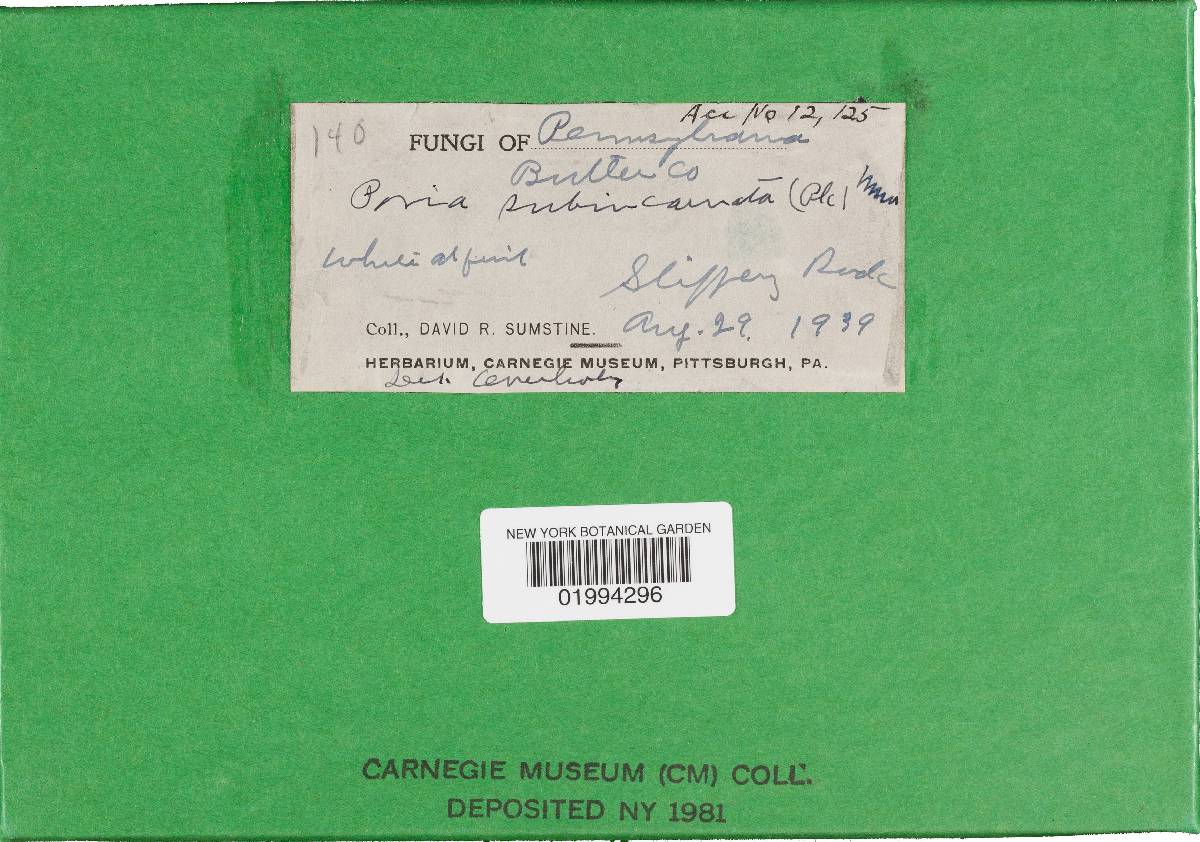 Acc No 12,125
140
FUNGI OF Pennsylvania
Butler Co
Poria subincarnata (Pk) Murr
White at first
Slippery Rock
Coll., DAVID R. SUMSTINE. Aug. 29. 1939
HERBARIUM, CARNEGIE MUSEUM, PITTSBURGH, PA.
Det. Overholts
NEW YORK BOTANICAL GARDEN
01994296
CARNEGIE MUSEUM (CM) COLL.
DEPOSITED NY 1981